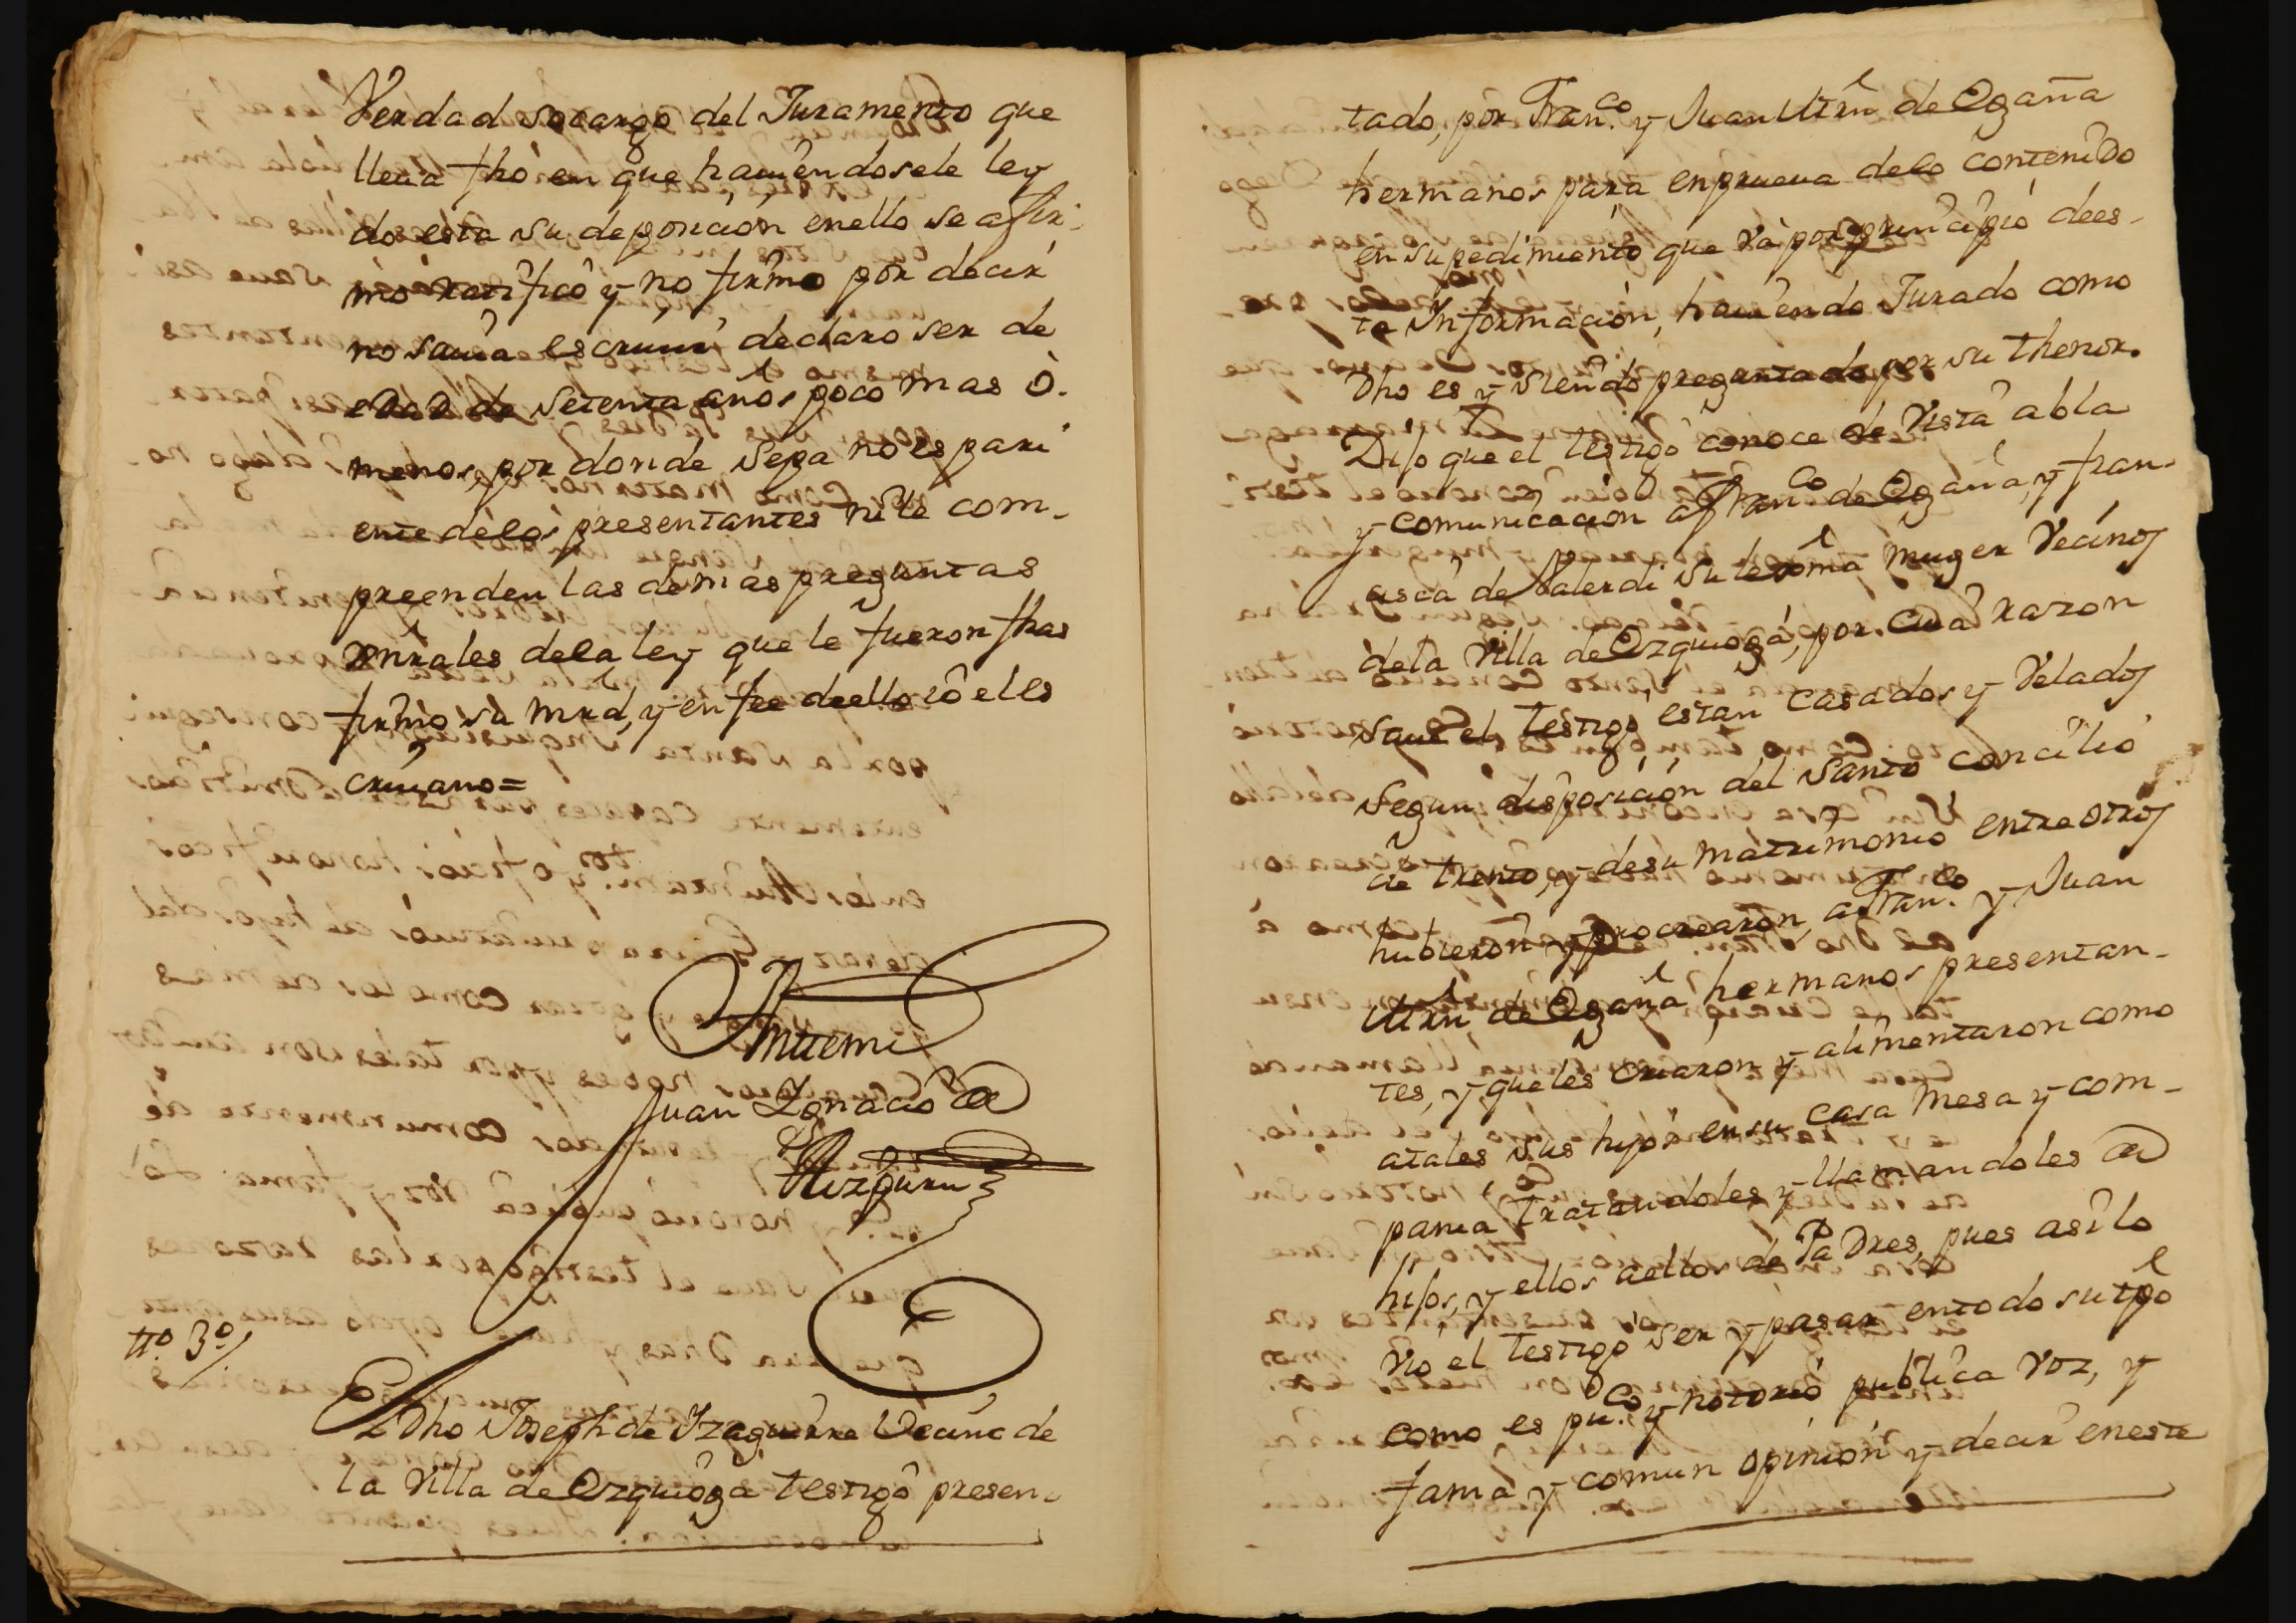 Verdad socargo del Juramento que
lleua fho en que hauiendosele ley
do esta su deposicion enello se afir-
mo ratificô y no firmo por decir
no sauia escriuir declaro ser de
edad de setenta años poco mas ò.
menos, por donde sepa no es pari
ente delos presentantes ni le com-
preenden las demas preguntas
xnrales dela ley que le fueron fhas
firmo su mrd, y en fee deello Yô el es
criuano=
Antemi
Juan Ygnacio de
Aizpuru
tto. 3o/.
El Dho Joseph de Yzaguirre Vecino de
la Villa de Ezquioga testigo presen-
tado, por Franco. y Juan Mrn de Ogaña
hermanos para en prueua delo contenido
en su pedimiento que và por principio de es-
ta Informacion, hauiendo Jurado como
Dho es y siendo preguntado por su thenor.
Dijo que el testigo conoce de Vista abla
y comunicacion a Franco de Ogaña, y fran-
cisca de Valerdi su lexma muger Vecinos
dela Villa de Ezquioga, por cuia razon
saue el testigo estan casados y Velados
segun disposicion del santo concilio
de trento, y de su matrimonio entre otros
hubieron y procrearon, a Franco. y Juan
Mrn de Ogaña hermanos presentan-
tes, y que les criaron y alimentaron como
atales sus hijos en su casa mesa y com-
pania tratandoles y llamandoles de
hijos, y ellos aellos de Padres, pues asi lo
Vio el testigo ser y pasar entodo su tpo
como es puco. y notorio publica Voz, y
fama y comun opinion y decir eneste